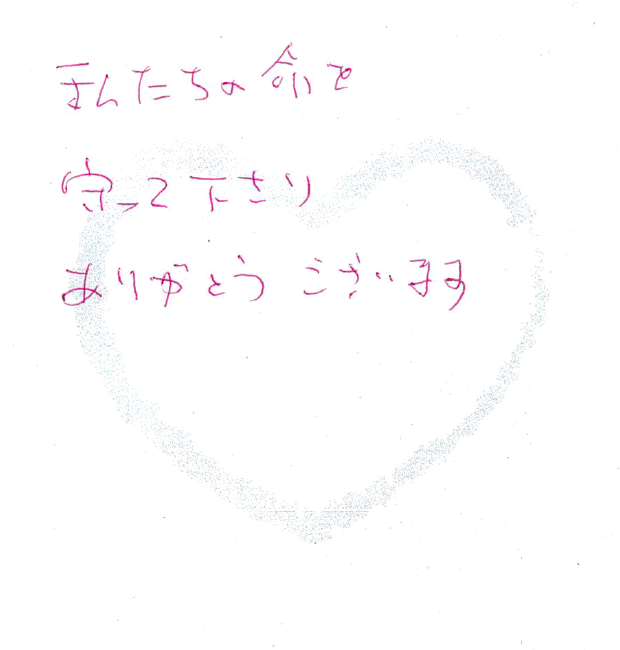 たちの命を
守って下さり
ありがとうございます